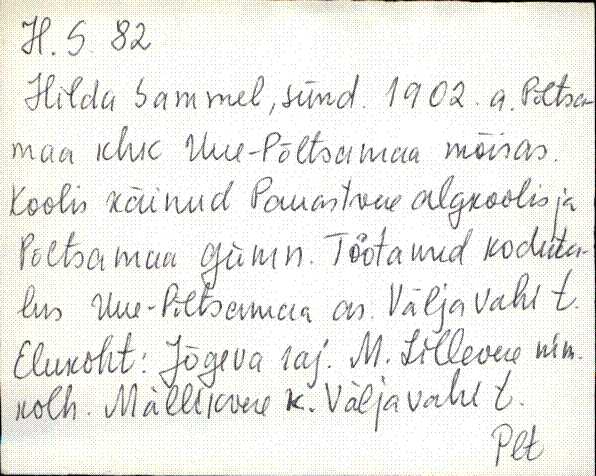 H. S. 82
Hilda Sammel, sünd. 1902. a. Põltsa-
maa khk Uue-Põltsamaa mõisas.
Koolis käinud Pauastvere algkoolis ja
Põltsamaa gümn. Töötanud koduta-
lus Uue-Põltsamaa as. Väljavahi t.
Elukoht: Jõgeva raj. M. Lillevere nim.
kolh. Mällikvere k. Väljavahi t.
Plt